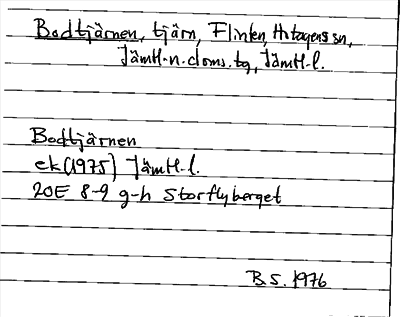 Bodtjärnen, tjärn, Flinten, Hotagens sn,
Jämtl. n. doms. tg, Jämtl. l.
Bodtjärnen
ek (1975) Jämtl. l.
20E 8-9 g-h Storflyberget
B.S. 1976